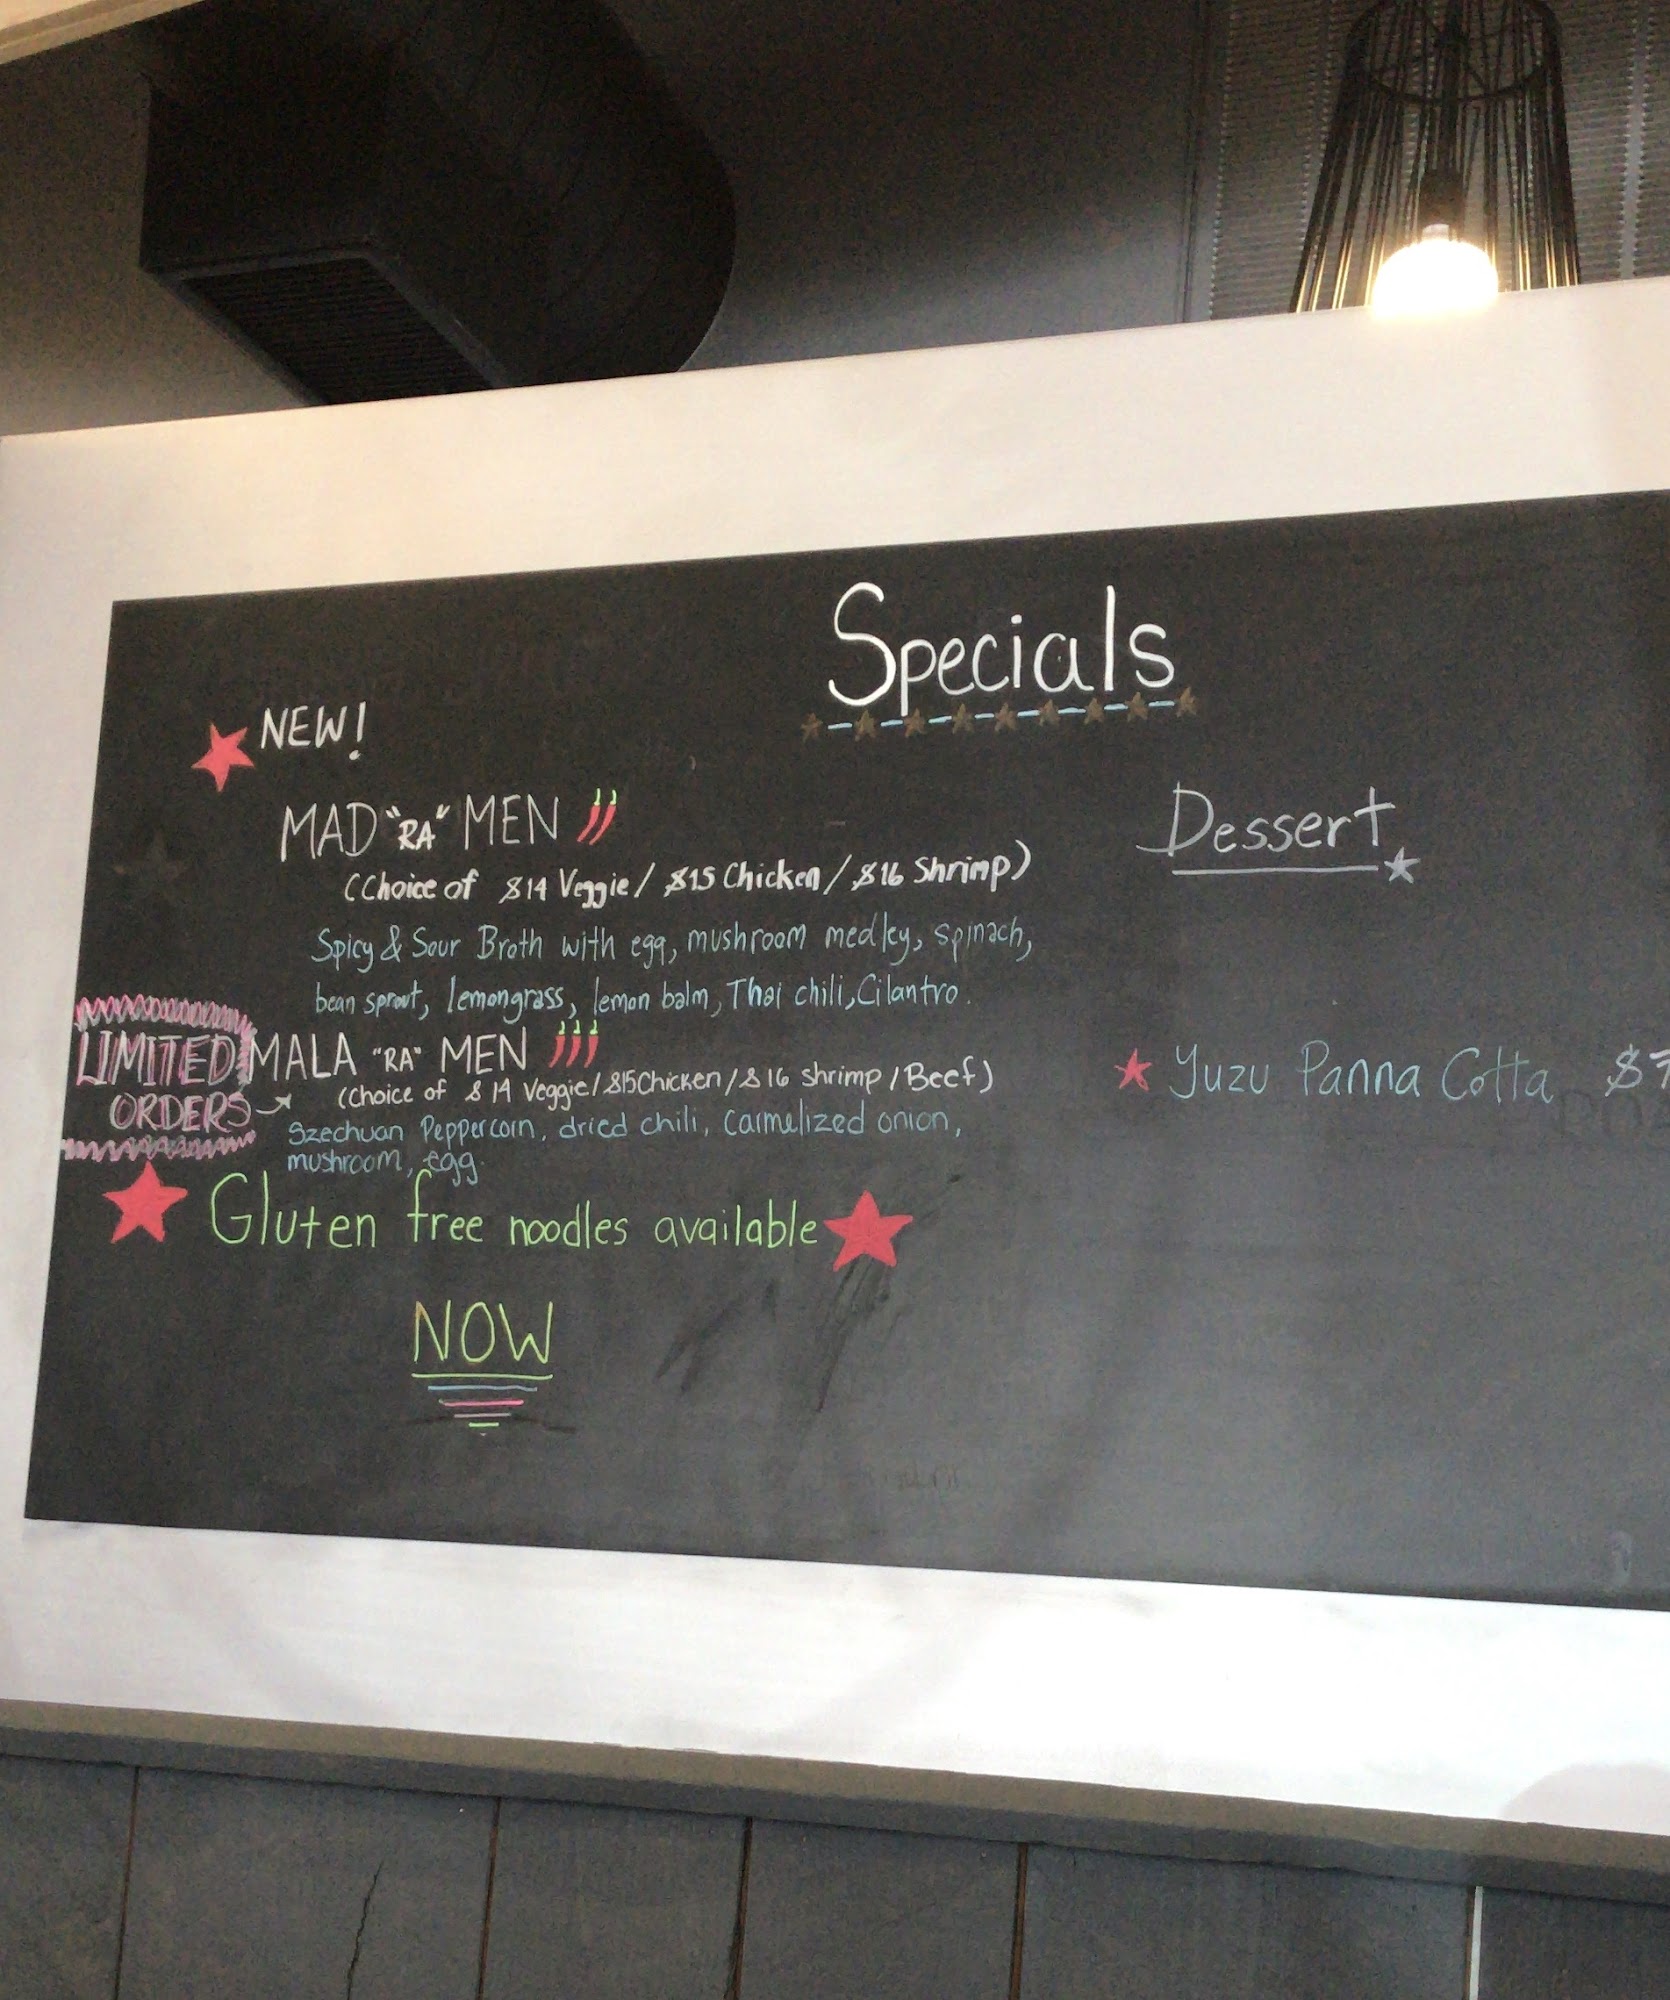 Specials
NEW!
MAD "RA" MEN
(Choice of $14 Veggie / $15 Chicken / $16 Shrimp)
Spicy & Sour Broth with egg, mushroom medley, spinach,
bean sprout, lemongrass, lemon balm, Thai chili, Cilantro.
LIMITED
ORDERS
MALA "RA" MEN
(Choice of $14 Veggie / $15 Chicken / $16 Shrimp / Beef)
Szechuan Peppercorn, dried chili, Carmelized onion,
mushroom, egg.
Gluten free noodles available
NOW
Dessert
Yuzu Panna Cotta $7